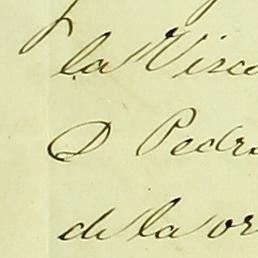 la Visco
D Pedro
de la or